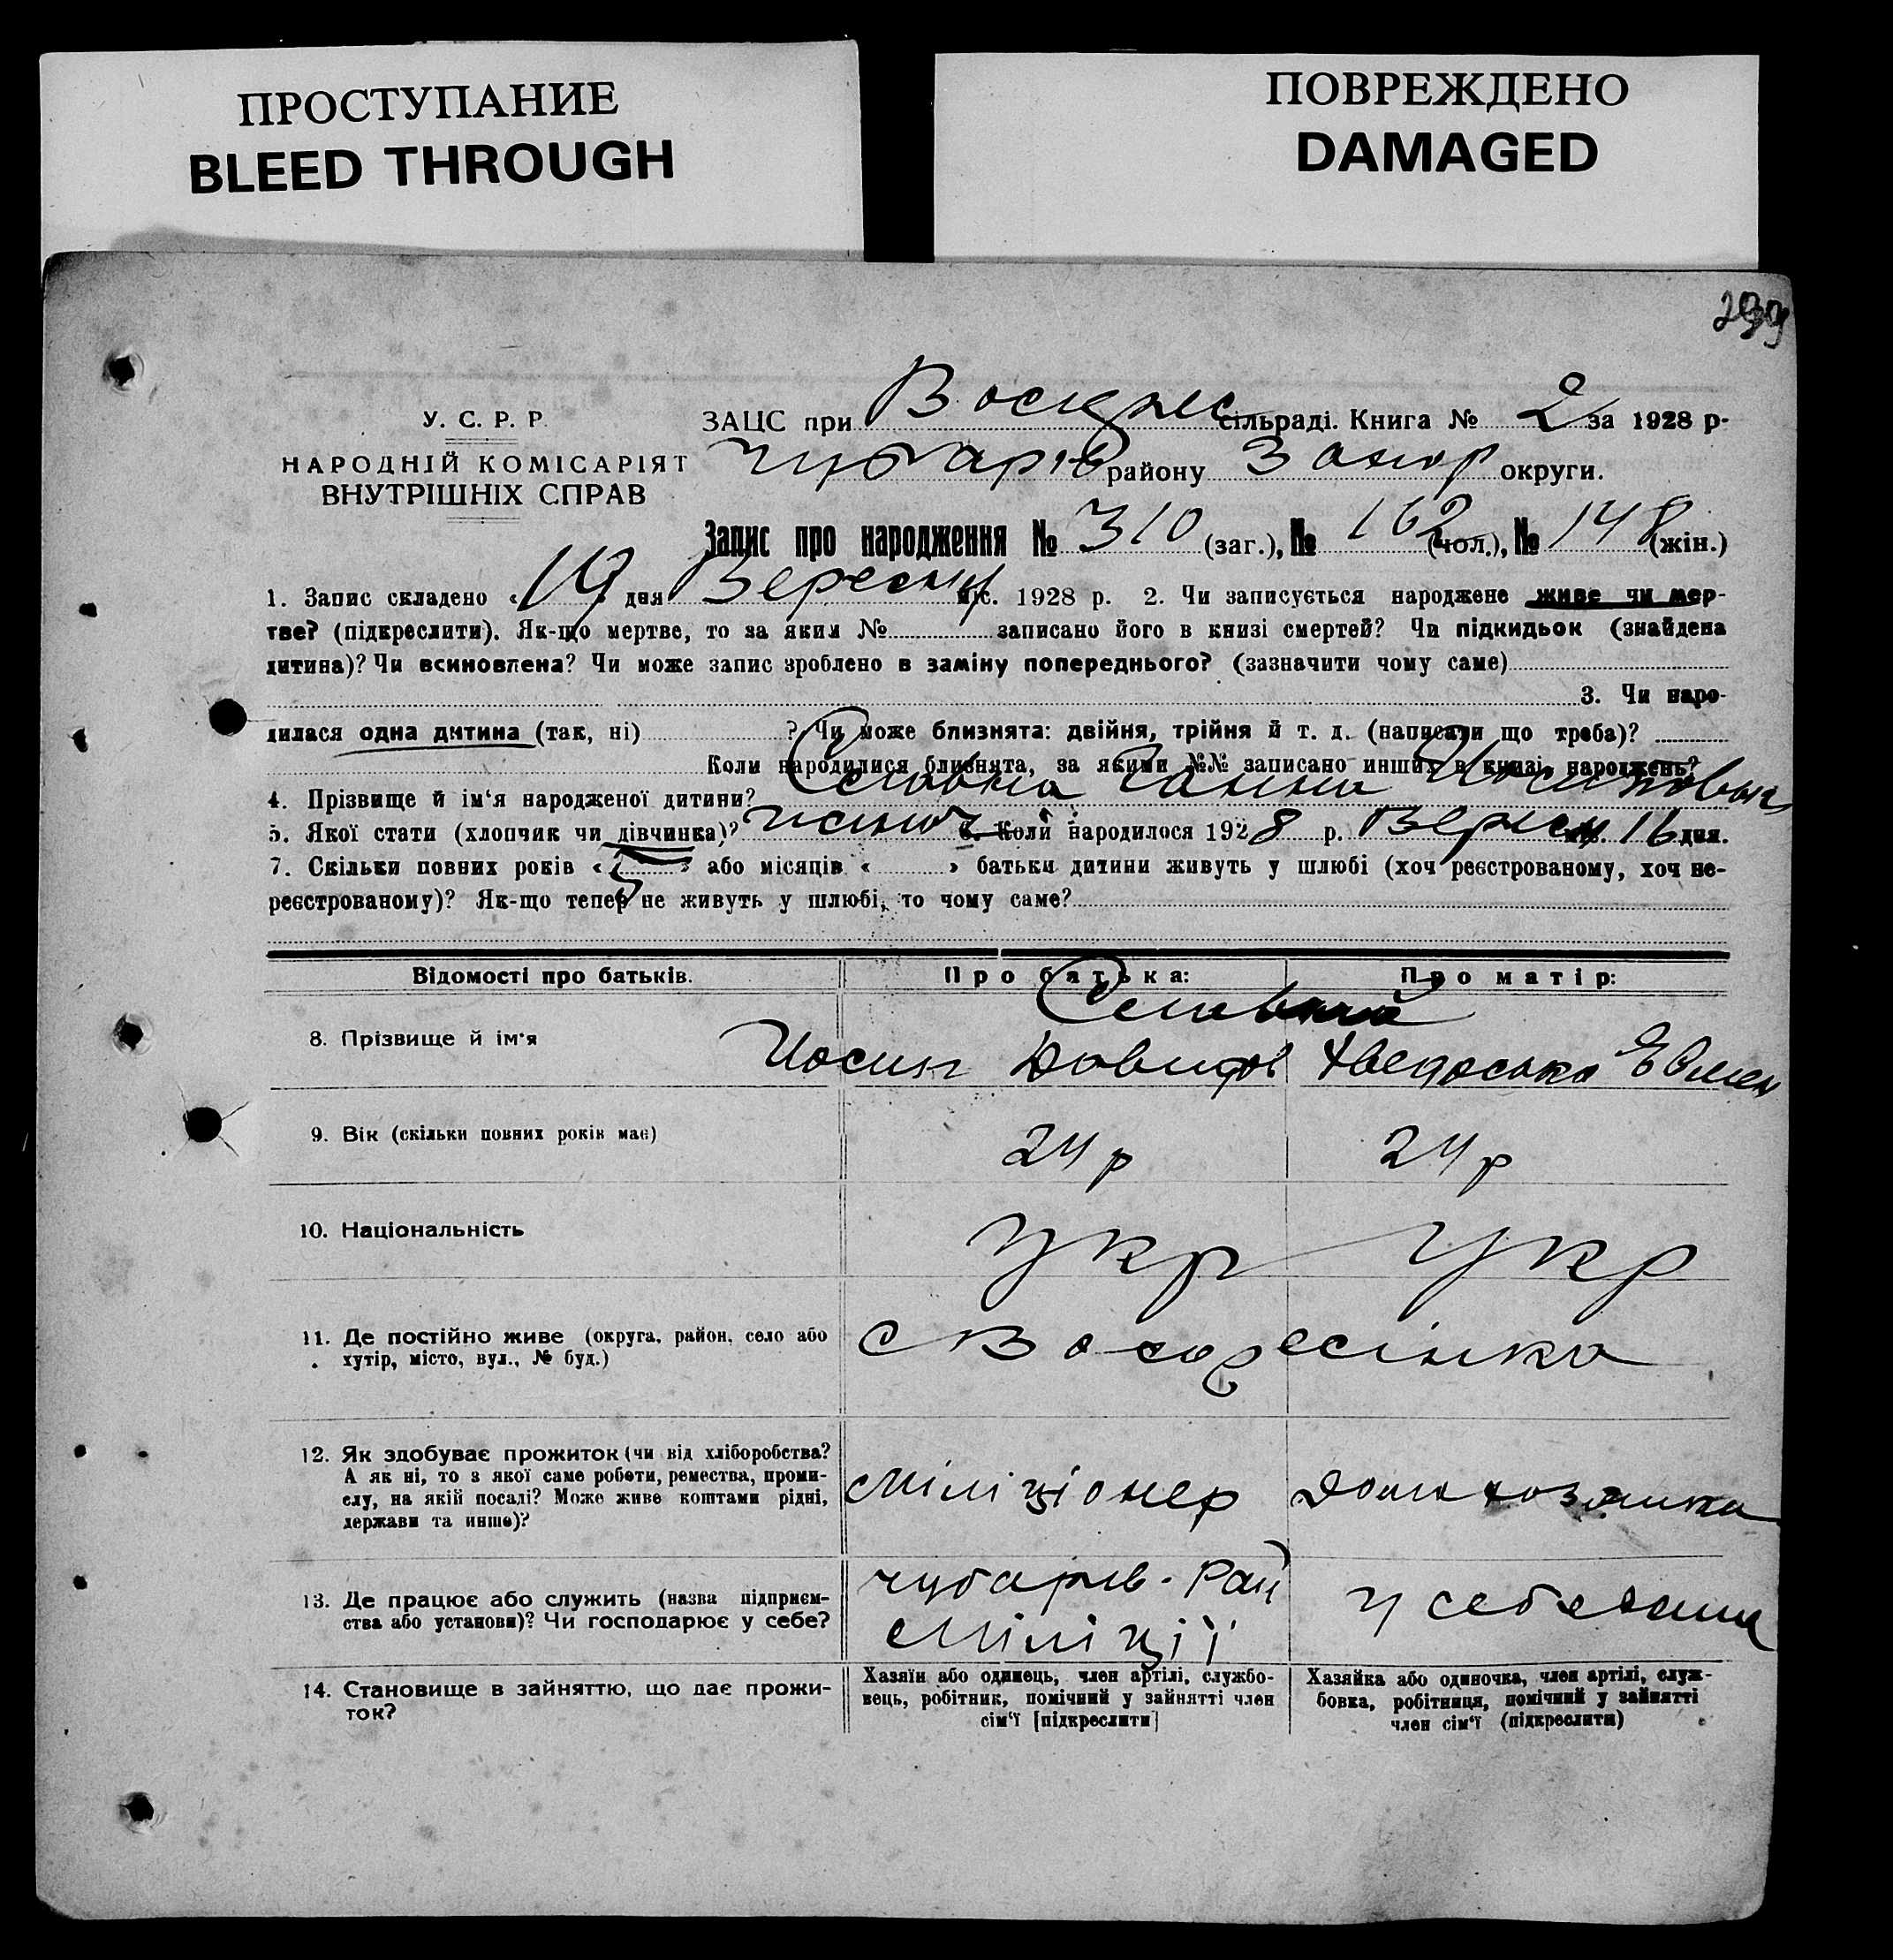 ПРОСТУПАНИЕ
BLEED THROUGH
ПОВРЕЖДЕНО
DAMAGED
У. С. Р. Р.
НАРОДНІЙ КОМІСАРІЯТ
ВНУТРІШНІХ СПРАВ
ЗАЦС при Воскрес сільраді. Книга № 2 за 1928 р.
Чубарів району Запор округи.
Запис про народження № 310 (заг.), № 162 (чол.), № 148 (жін.)
1. Запис складено « 19 » дня Вересня міс. 1928 р. 2. Чи записується народжене живе чи мер-
тве? (підкреслити). Як-що мертве, то за яким № записано його в книзі смертей? Чи підкидьок (знайдена
дитина)? Чи всиновлена? Чи може запис зроблено в заміну попереднього? (зазначити чому саме)
3. Чи наро-
дилася одна дитина (так, ні) ? Чи може близнята: двійня, трійня й т. д. (написати що треба)?
Коли народилися близнята, за якими №№ записано инших в книзі народжень?
4. Прізвище й ім‘я народженої дитини? Ганна
5. Якої стати (хлопчик чи дівчинка)? жіноч 6. Коли народилося 1928 р. Вересн міс. 16 дня.
7. Скільки повних років « » або місяців « » батьки дитини живуть у шлюбі (хоч реєстрованому, хоч не-
реєстрованому)? Як-що тепер не живуть у шлюбі, то чому саме?
Відомості про батьків. Про батька: Про матір:
8. Прізвище й ім‘я
Иосип Давидов Хведоська Явмен
9. Вік (скільки повних років має) 24 р 24 р
10. Національність Укр Укр
11. Де постійно живе (округа, район, село або
хутір, місто, вул., № буд.)
с Воскресінка
12. Як здобуває прожиток (чи від хліборобства?
А як ні, то з якої саме роботи, ремества, проми-
слу, на якій посаді? Може живе коштами рідні,
держави та инше)?
Міліціонер Домохозяика
13. Де працює або служить (назва підприєм-
ства або установи)? Чи господарює у себе?
Чубарів. Рай
Міліції
у себе дома
14. Становище в зайняттю, що дає прожи-
ток?
Хазяїн або одинець, член артілі, службо-
вець, робітник, помічний у зайнятті член
сім‘ї [підкреслити]
Хазяйка або одиночка, член артілі, служ-
бовка, робітниця, помічний у зайнятті
член сім‘ї (підкреслити)